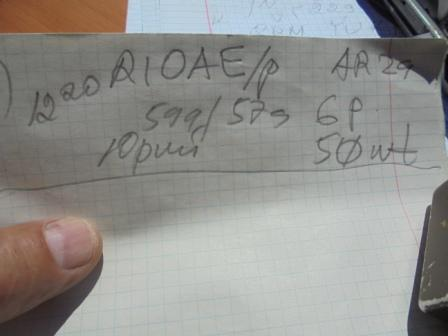 12²⁰ R10AE/p AR29
599/579 6P.
10рши 5Øwt